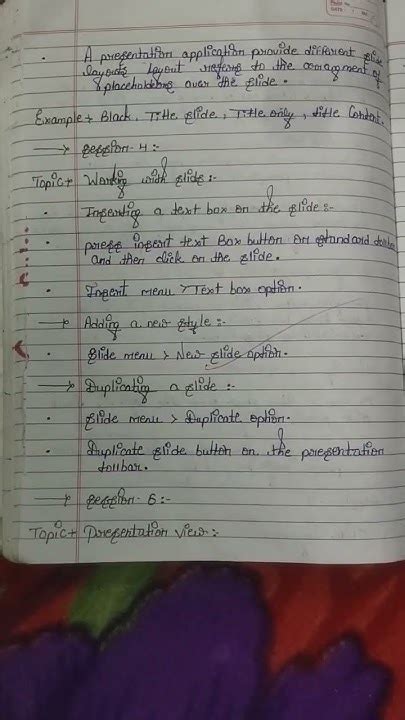 • A presentation application provide different slide
layouts layout refers to the arrangement of
placeholders over the slide.
Example → Black, Title slide, Title only, title Content.
→ session-4:-
Topic → Working with slide:-
• Inserting a text box on the slide:-
• press insert text Box button on standard toolbar
and then click on the slide.
• Insert menu > Text box option.
→ Adding a new style:-
• Slide menu > New slide option.
→ Duplicating a slide:-
• Slide menu > Duplicate option.
• Duplicate slide button on the presentation
toolbar.
→ session-5:-
Topic → Presentation view:-